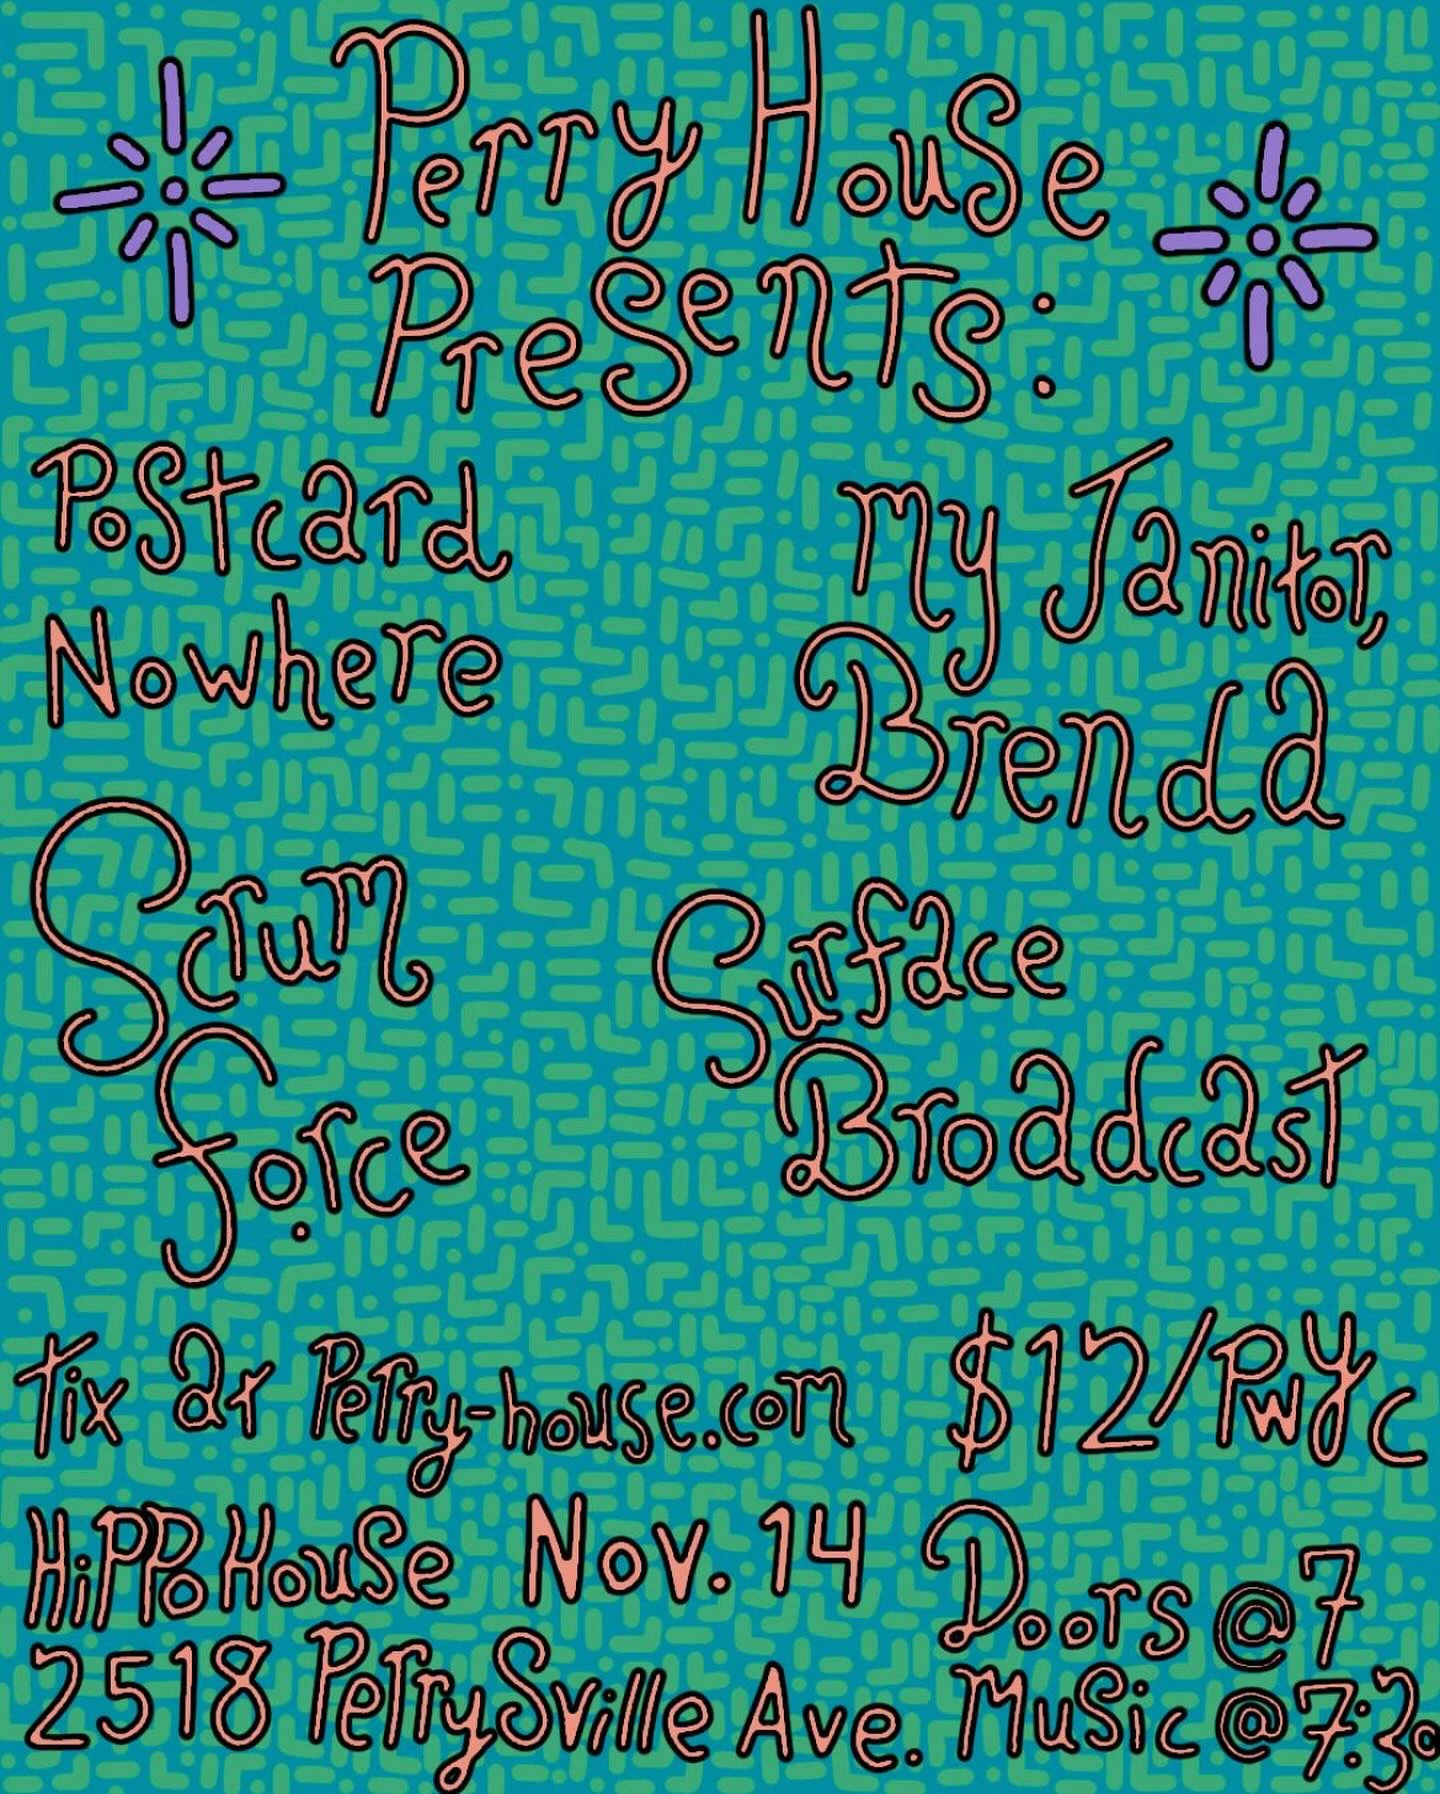 Perry House
Presents:
Postcard
Nowhere
My Janitor,
Brenda
Scrum
force
Surface
Broadcast
Tix at Perry-house.com
$12/PWYC
HiPPo House Nov. 14
Doors @ 7
2518 PerrySville Ave.
Music @ 7:30